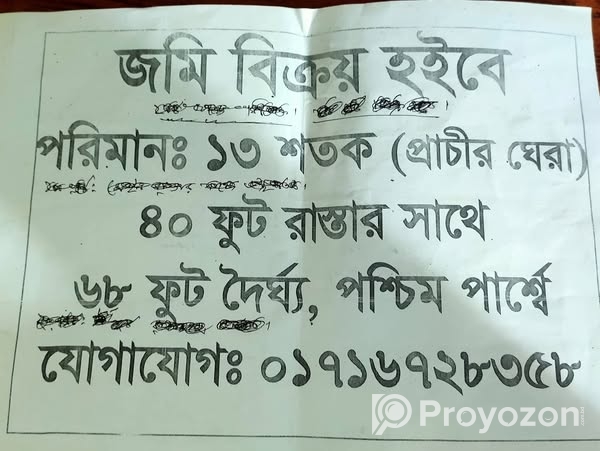 জমি বিক্রয় হইবে
পরিমানঃ ১৩ শতক (প্রাচীর ঘেরা)
৪০ ফুট রাস্তার সাথে
৬৮ ফুট দৈর্ঘ্য, পশ্চিম পার্শ্বে
যোগাযোগঃ ০১৭১৬৭২৮৩৫৮
Proyozon